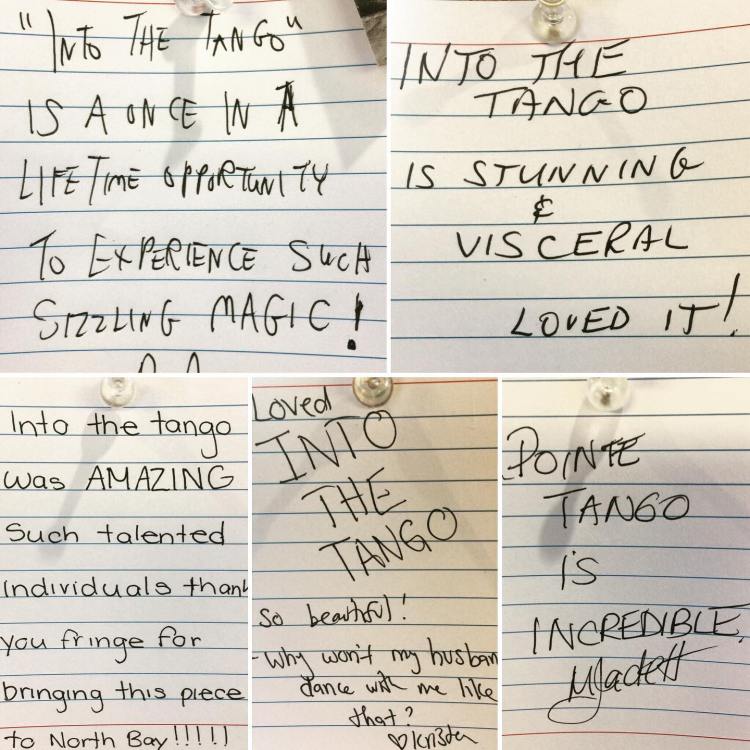 "INTO THE TANGO"
IS A ONCE IN A
LIFETIME OPPORTUNITY
TO EXPERIENCE SUCH
SIZZLING MAGIC!
INTO THE
TANGO
IS STUNNING
&
VISCERAL
LOVED IT!
Into the tango
was AMAZING
Such talented
individuals thank
you fringe for
bringing this piece
to North Bay!!!!!
Loved
INTO
THE
TANGO
So beautiful!
-Why won't my husban
dance with me like
that?
POINTE
TANGO
IS
INCREDIBLE,